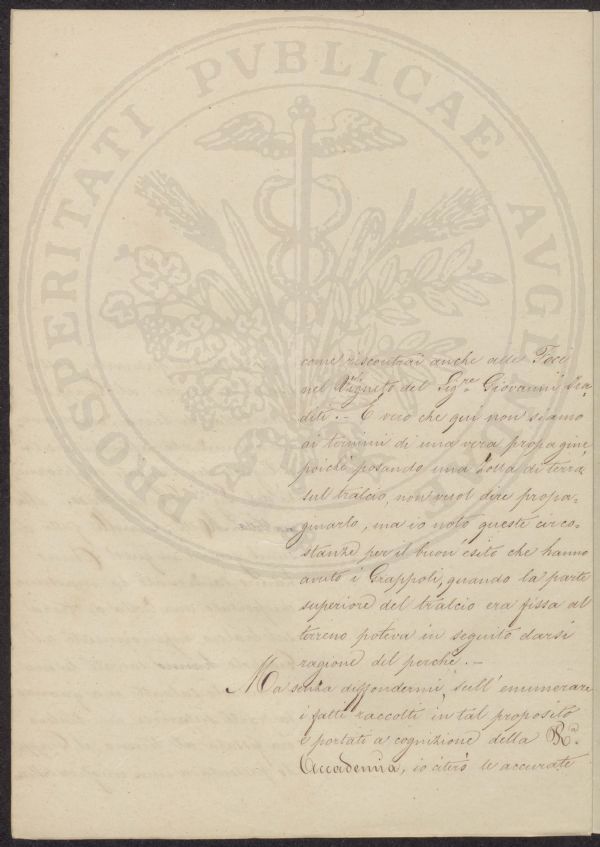 PROSPERITATI PVBLICAE AVGENDAE
come riscontrai anche alle Foci
nel Vigneto del Sig.re Giovanni
diti. – È vero che qui non siamo
ai termini di una vera propagine,
poichè posando una zolla di terra
sul tralcio, non vuol dire propa=
ginarlo, ma io noto queste circo=
stanze per il buon esito che hanno
avuto i Grappoli, quando la parte
superiore del tralcio era fissa al
terreno poteva in seguito darsi
ragione del perchè. –
Ma senza diffondermi, sull' enumerare
i fatti raccolti in tal proposito
e portati a cognizione della R.a
Accademia, io citerò le accurate